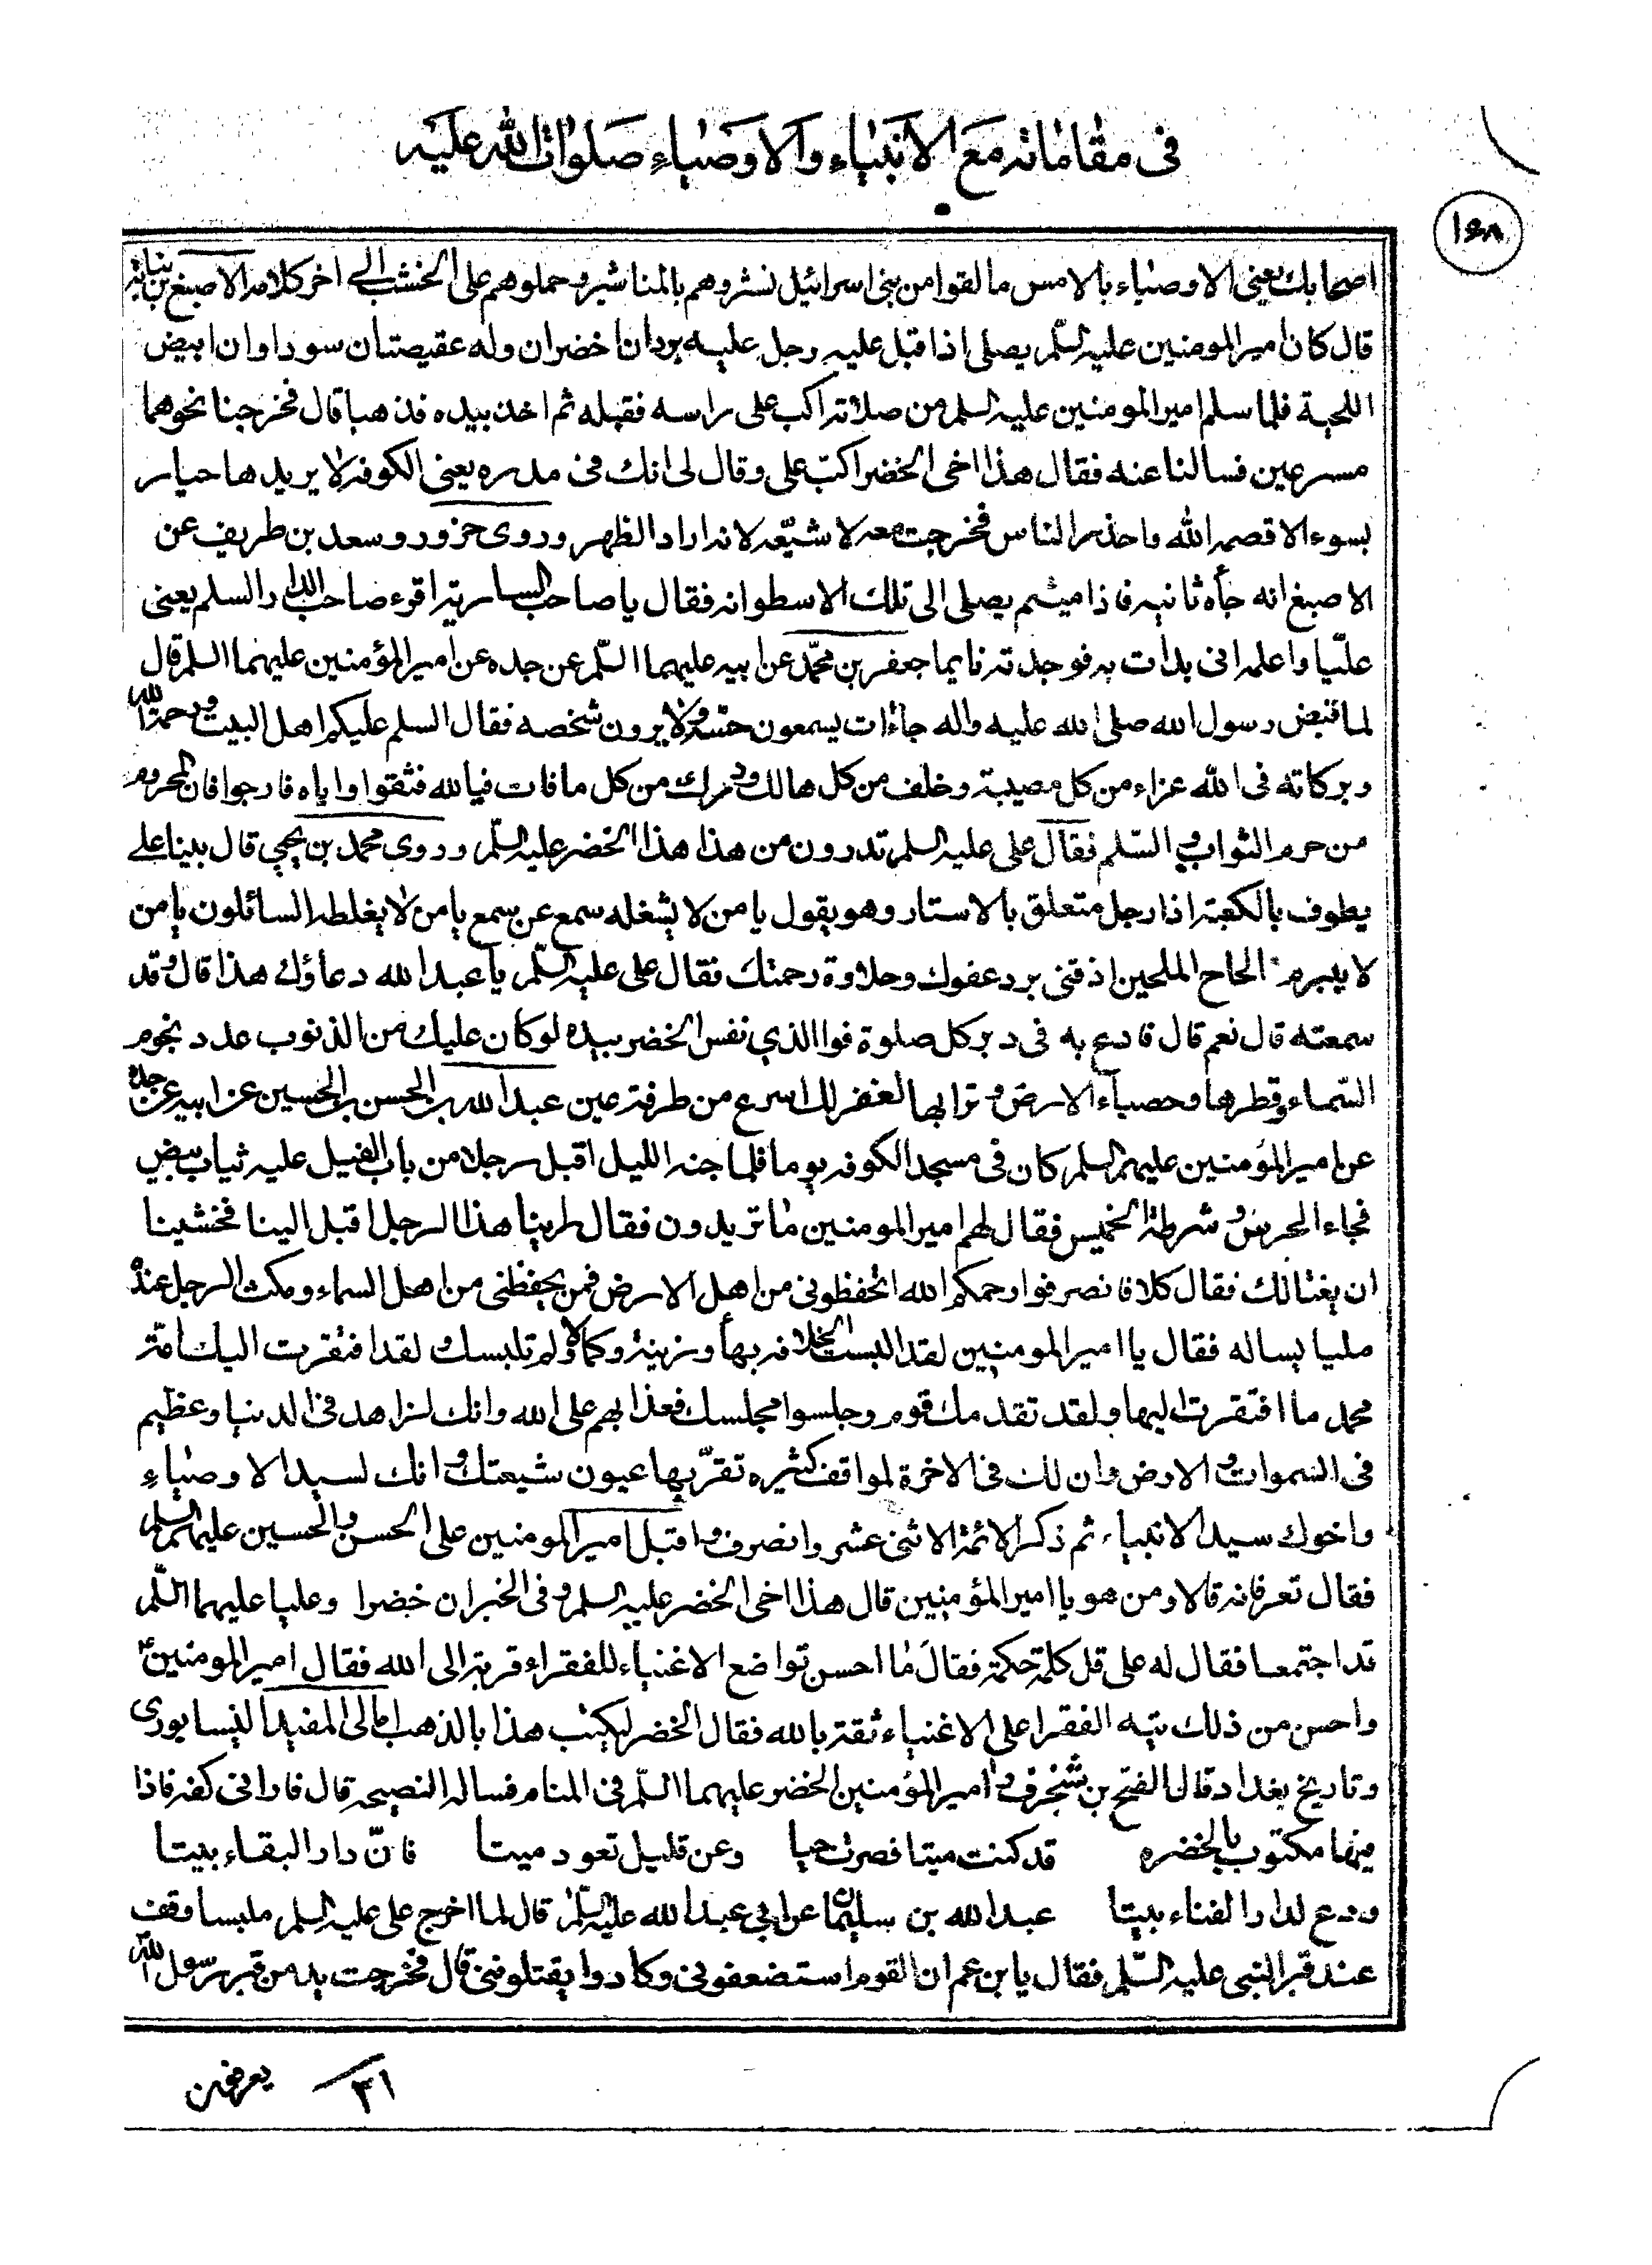 في مقاماته مع الانبياء والاوصياء صلوات الله عليه
١٤٨
اصحابك يعني الاوصياء بالامس ما لقوا من بني اسرائيل نشروهم بالمناشير وحملوهم على الخشب الى اخر كلامه الاصبغ بن نباته
قال كان امير المومنين عليه السلم يصلي اذا قبل عليه رجل عليه بردان اخضران وله عقيصتان سوداوان ابيض
اللحية فلما سلم امير المومنين عليه السلم من صلاته اكب على راسه فقبله ثم اخذ بيده فذهبا قال فخرجنا نحوهما
مسرعين فسالنا عنه فقال هذا اخي الخضر اكب علي وقال لي انك في مدره يعني الكوفه لا يريدها جبار
بسوء الا قصمه الله واحذر الناس فخرجت معه لاشيّعه لانه اراد الظهر وروى حزور وسعد بن طريف عن
الاصبغ انه جأه ثانيه فاذا ميثم يصلي الى تلك الاسطوانه فقال يا صاحب الساريه اقرء صاحب الدار السلم يعني
عليّا واعلمه انى بدات به فوجدته نايما جعفر بن محمّد عن ابيه عليهما السّلم عن جده عن امير المؤمنين عليهما السلم قال
لما قبض رسول الله صلى الله عليه واله جاءات يسمعون حسّه ولا يرون شخصه فقال السلم عليكم اهل البيت ورحمة الله
وبركاته في الله عزاء من كل مصيبة وخلف من كل هالك ودرك من كل ما فات فبالله فثقوا واياه فارجوا فان المحروم
من حرم الثواب والسّلم فقال علي عليه السلم تدرون من هذا هذا الخضر عليه السلّم وروى محمد بن يحيي قال بينا علي
يطوف بالكعبة اذا رجل متعلق بالاستار وهو يقول يا من لا يشغله سمع عن سمع يا من لا يغلطه السائلون يا من
لا يتبرم الحاح الملحين اذقني برد عفوك وحلاوة رحمتك فقال علي عليه السّلم يا عبد الله دعاؤك هذا قال وقد
سمعته قال نعم قال فادع به في دبر كل صلوة فوا الذي نفس الخضر بيده لو كان عليك من الذنوب عدد نجوم
السّماء وقطرها وحصباء الارض وترابها لغفر لك اسرع من طرفة عين عبد الله بن الحسن بن الحسين عن ابيه عن جده
عن امير المؤمنين عليهم السلم كان في مسجد الكوفه يوما فلما جنه الليل اقبل رجلا من باب الفيل عليه ثياب بيض
فجاء الحرس وشرطة الخميس فقال لهم امير المومنين ما تريدون فقال راينا هذا الرجل اقبل الينا فخشينا
ان يغتالك فقال كلا فانصرفوا رحمكم الله اتحفظوني من اهل الارض فمن يحفظني من اهل السماء ومكث الرجل عنده
مليا يساله فقال يا امير المومنين لقد البست الخلافه بهأ وزينة وكمالا ولم تلبسك ولقد افتقرت اليك امّة
محمد ما افتقرت اليها ولقد تقدمك قوم وجلسوا مجلسك فعذابهم على الله وانك لزاهد في الدنيا وعظيم
في السموات والارض وان لك في الاخرة لمواقف كثيره تقرّ بها عيون شيعتك وانك لسيد الاوصياء
واخوك سيد الانبياء ثم ذكر الائمة الاثني عشر وانصرف واقبل امير المومنين على الحسن والحسين عليهما السلم
فقال تعرفانه قالا ومن هو يا امير المؤمنين قال هذا اخي الخضر عليه السلم وفي الخبر ان خضرا وعليا عليهما السّلم
قد اجتمعا فقال له علي قل كلمة حكمة فقال ما احسن تواضع الاغنياء للفقراء قربة الى الله فقال امير المومنين ع
واحسن من ذلك تيه الفقرا على الاغنياء ثقة بالله فقال الخضر ليكتب هذا بالذهب امالي المفيد النيسابوري
وتاريخ بغداد قال الفتح بن شخرف راى امير المؤمنين الخضر عليهما السلّم في المنام فساله النصيحه قال فاراني كفه فاذا
فيها مكتوب بالخضره قد كنت ميتا فصرت حيا وعن قليل تعود ميتا فانّ دار البقاء بيتا
ودع لدار الفناء بيتا عبد الله بن سليمان عن ابي عبد الله عليه السّلم قال لما اخرج علي عليه السلم ملببا وقف
عند قبر النبي عليه السّلم فقال يا بن عم ان القوم استضعفوني وكادوا يقتلونني قال فخرجت يد من قبر رسول الله
٣١
يعرفون